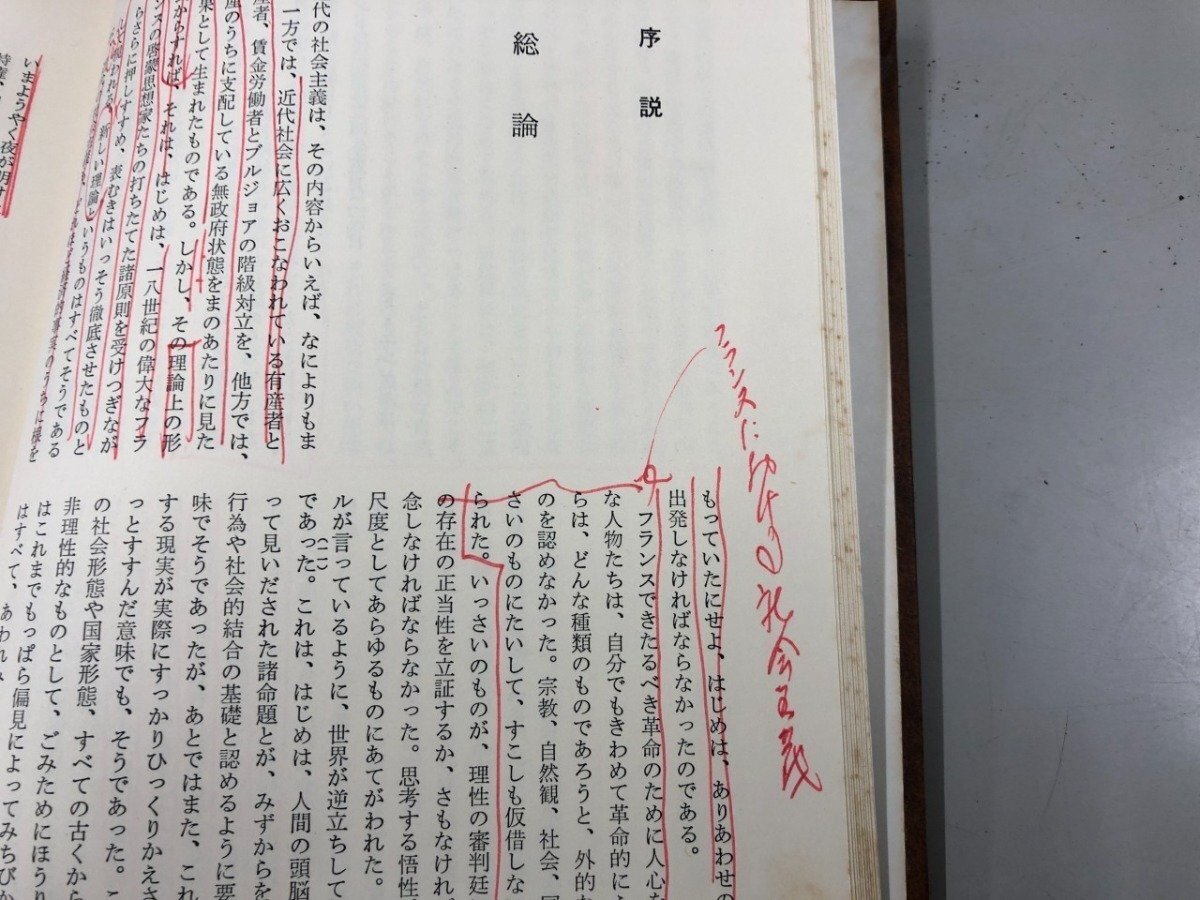 序説
総論
代の社会主義は、その内容からいえば、なによりもま
一方では、近代社会に広くおこなわれている有産者と
産者、賃金労働者とブルジョアの階級対立を、他方では、
産のうちに支配している無政府状態をまのあたりに見た
果として生まれたものである。しかし、その理論上の形
からすれば、それは、はじめは、一八世紀の偉大なフラ
ンスの啓蒙思想家たちの打ちたてた諸原則を受けつぎなが
らさらに押しすすめ、表むきはいっそう徹底させたものと
新しい理論というものはすべてそうである
フランスにおける社会主義
もっていたにせよ、はじめは、ありあわせの
出発しなければならなかったのである。
フランスできたるべき革命のために人心を
な人物たちは、自分でもきわめて革命的に
らは、どんな種類のものであろうと、外的な
のを認めなかった。宗教、自然観、社会、国
さいのものにたいして、すこしも仮借しな
られた。いっさいのものが、理性の審判廷
の存在の正当性を立証するか、さもなければ
念しなければならなかった。思考する悟性
尺度としてあらゆるものにあてがわれた。
ルが言っているように、世界が逆立ちして
であった。これは、はじめは、人間の頭脳
(一)
って見いだされた諸命題とが、みずからを
行為や社会的結合の基礎と認めるように要
味でそうであったが、あとではまた、これ
する現実が実際にすっかりひっくりかえさ
っとすすんだ意味でも、そうであった。こ
の社会形態や国家形態、すべての古くから
非理性的なものとして、ごみためにほうり
はこれまでもっぱら偏見によってみちびか
はすべて、あわれみ
いまようやく夜が明け